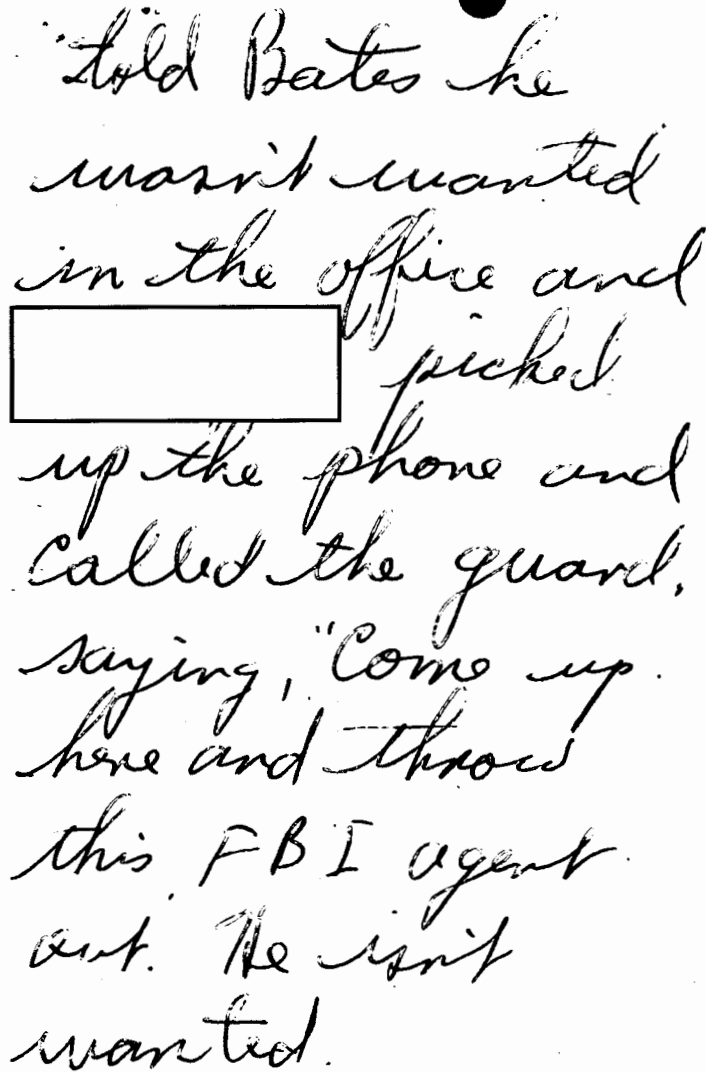 told Bates he
wasn't wanted
in the office and
picked
up the phone and
called the guard,
saying, "Come up
here and throw
this FBI agent
out. He isn't
wanted.